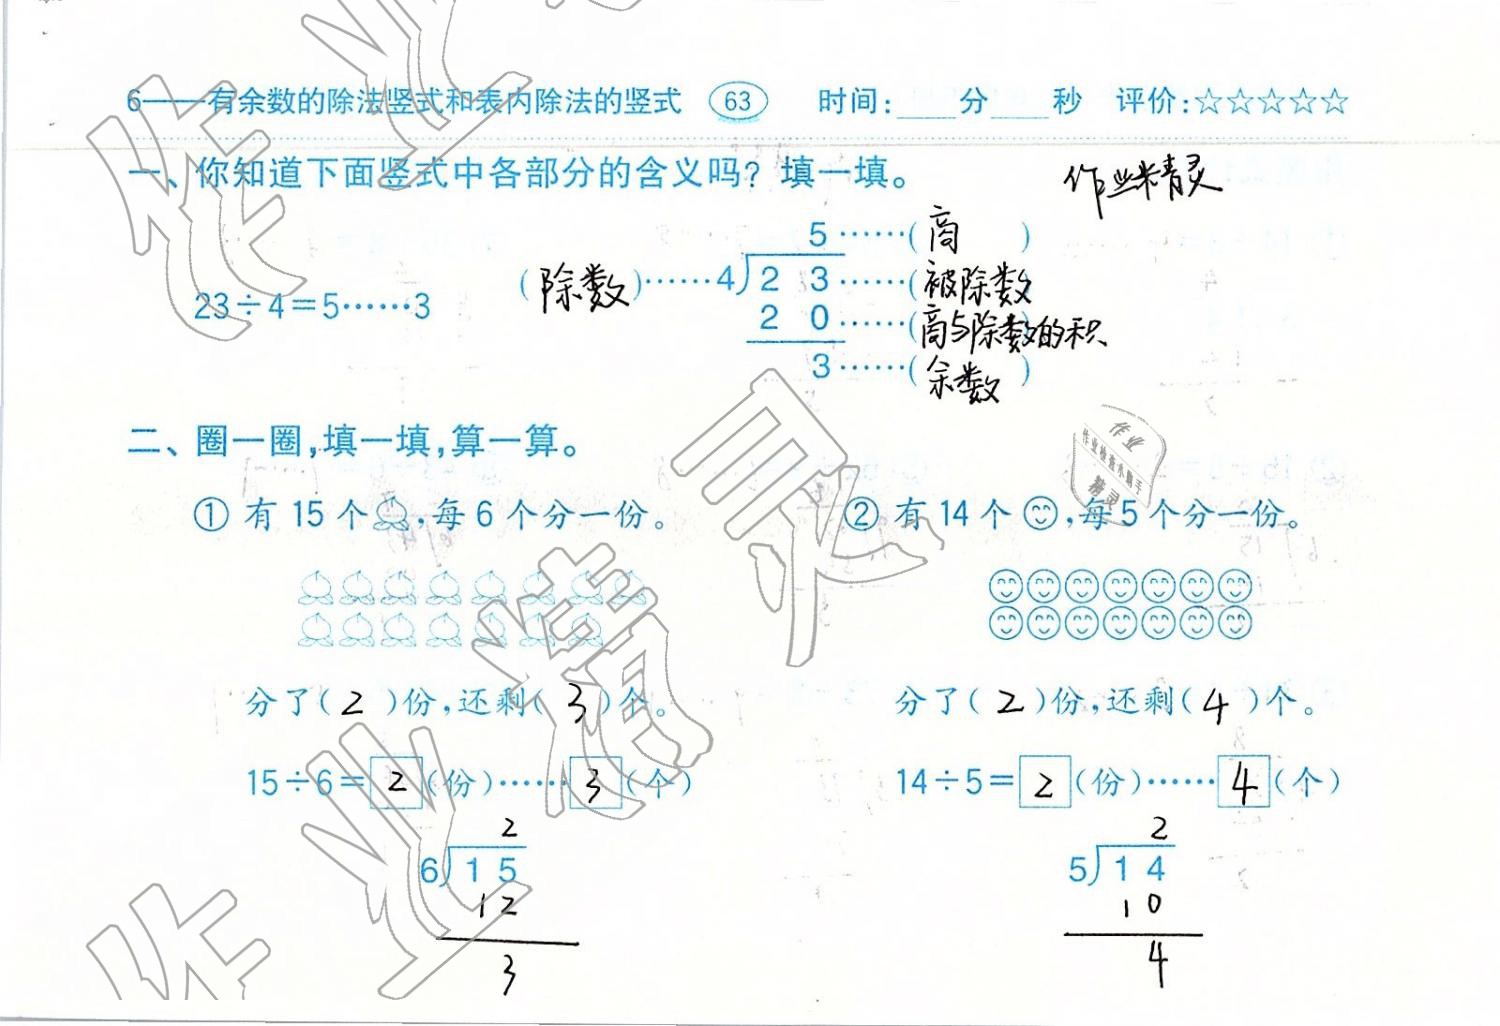 6——有余数的除法竖式和表内除法的竖式 63 时间:____分____秒 评价:☆☆☆☆☆
一、你知道下面竖式中各部分的含义吗? 填一填。
作业精灵
5……(商)
(除数)……4 23……(被除数)
23÷4=5……3
20……(商与除数的积
3……(余数)
二、圈一圈,填一填,算一算。
① 有15个,每6个分一份。
② 有14个,每5个分一份。
作业
作业检查小助手
精灵
分了(2)份,还剩(3)个。
分了(2)份,还剩(4)个。
15÷6=2(份)……3(个)
14÷5=2(份)……4(个)
2
6 15
12
3
2
5 14
10
4
作业精灵
作业